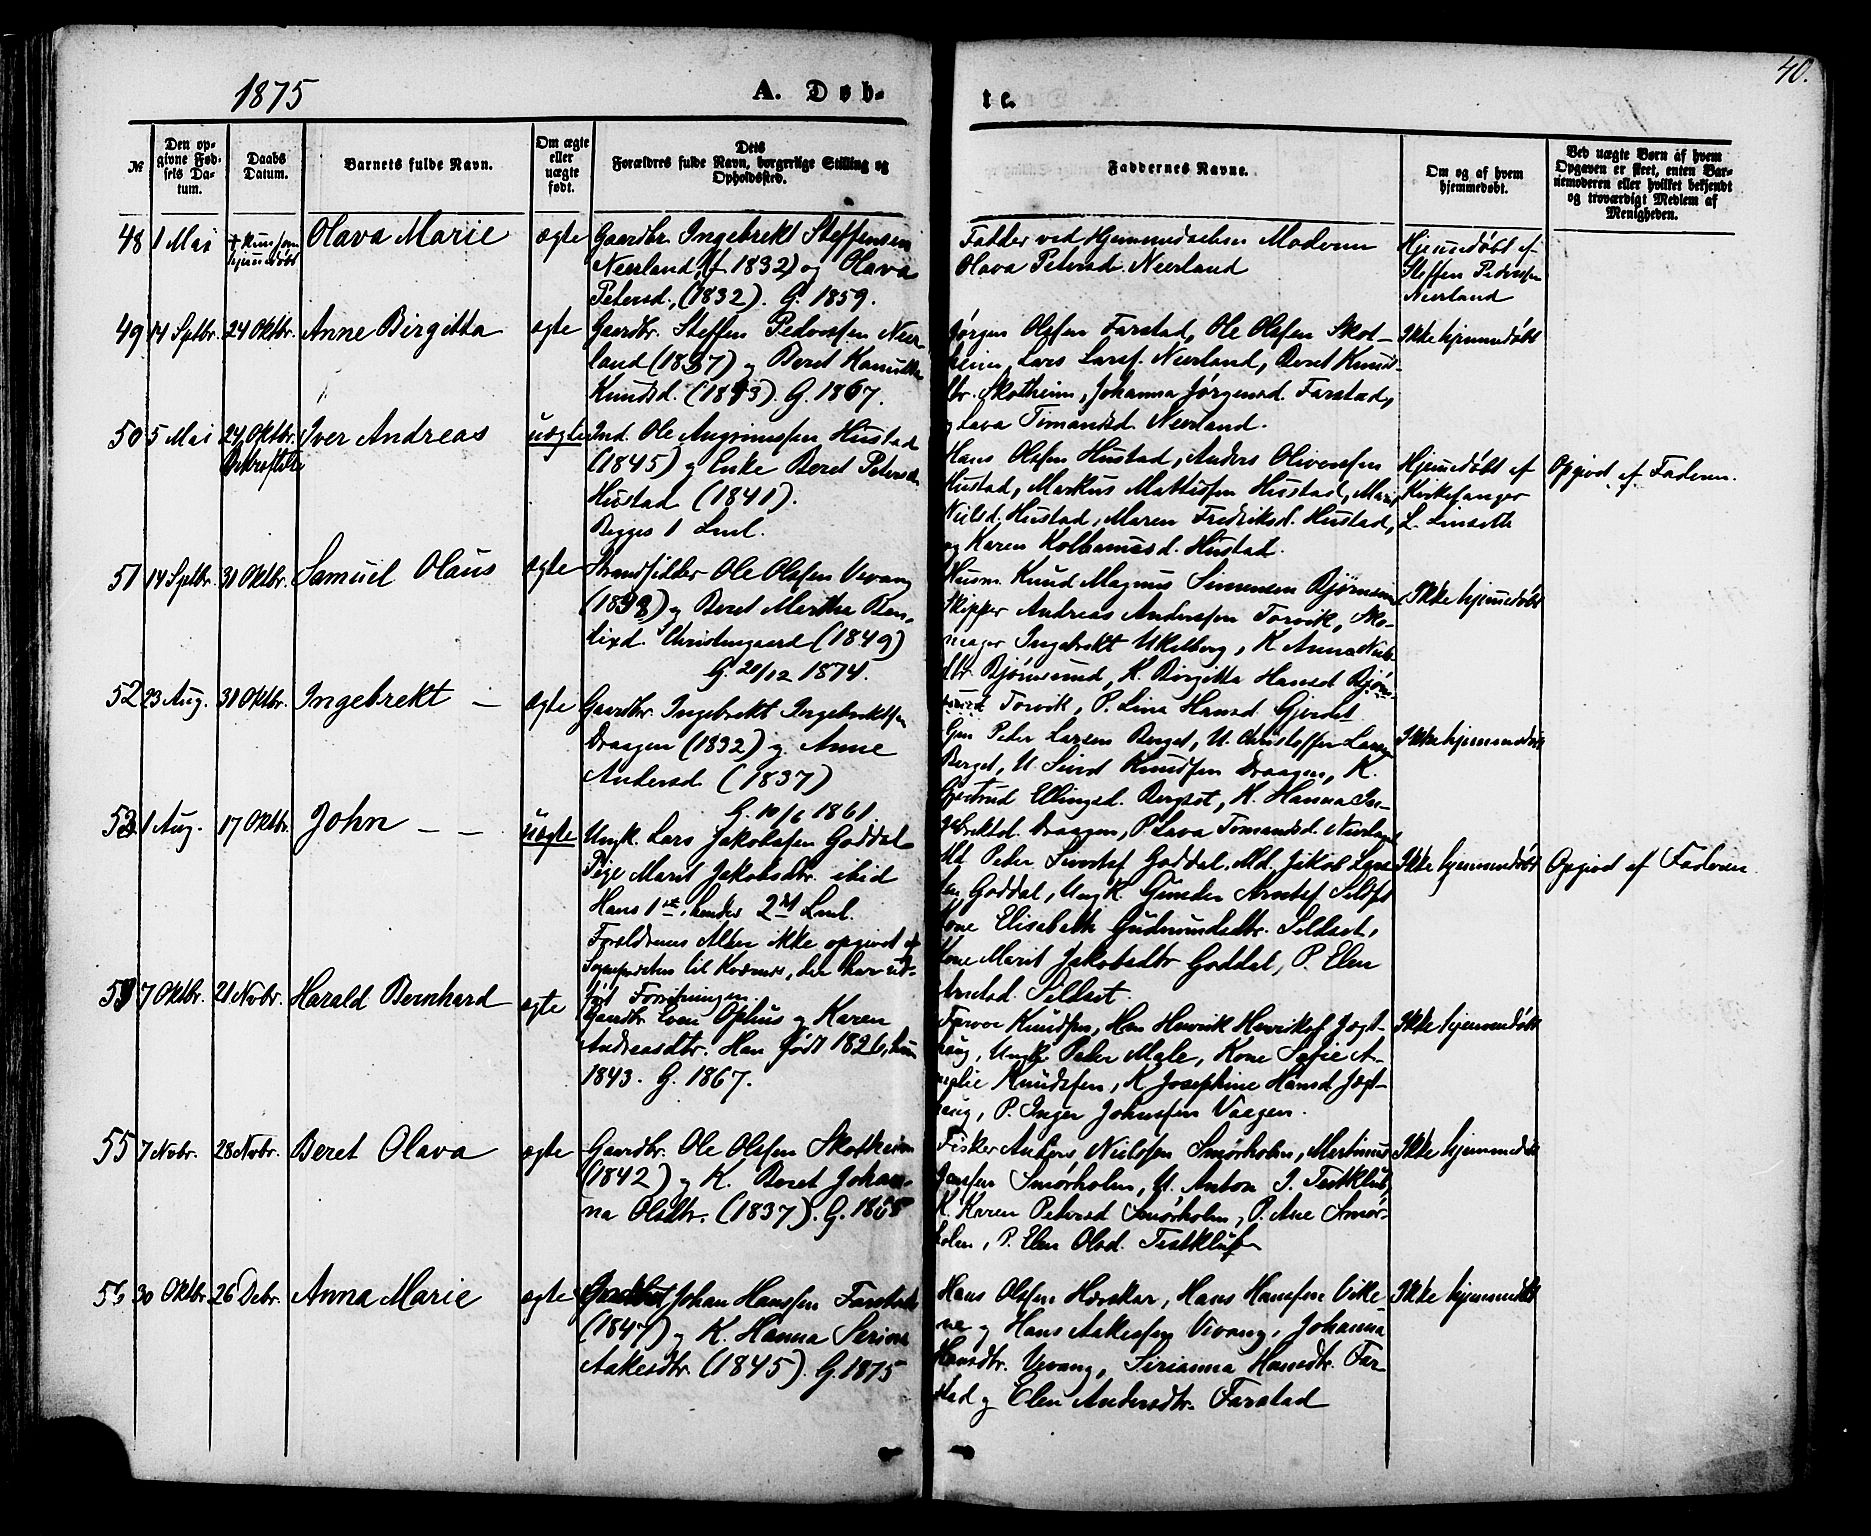 1875
A. Døb-
te.
40.
№
Den op-
givne Fød-
sels Da-
tum.
Daabs
Datum.
Barnets fulde Navn.
Om ægte
eller
uægte
født.
Dets
Forældres fulde Navn, borgerlige Stilling og
Opholdssted.
Faddernes Navne.
Om og af hvem
hjemmedøbt.
Ved uægte Børn af hvem
Opgaven er skeet, enten Bar-
nemoderen eller hvilket bekjendt
og troværdigt Medlem af
Menigheden.
48
1 Mai
hjemmedøbt
Olava Marie
ægte
Gaardbr. Ingebrekt Steffensen
Neerland, (f 1832) og Olava
Petersd., (1832). G. 1859.
Fadder ved Hjemmedaaben Moderen
Olava Petersd. Neerland
Hjemmedøbt af
Steffen Pedersen
Neerland
49
14 Sptbr.
24 Oktbr.
Anne Birgitta
ægte
Gaardbr. Steffen Pedersen Neer-
land (1837) og Beret
Knudsd. (1843). G. 1867.
Jørgen Olsen Farstad, Ole Olsen Skot-
heim, Lars Larss. Neerland, Beret Knuds-
dtr. Skotheim, Johanna Jørgensd. Farstad,
og Lava Tomasd. Neerland.
Ikke hjemmedøbt
50
5 Mai
24 Oktbr.
Bekræftet
Iver Andreas
uægte
Ind. Ole Hustad
(1845) og Enke Beret Petersd.
Hustad (1841).
Begges 1 Lml.
Hans Olsen Hustad, Anders Oliversen
Hustad, Markus Mattissen Hustad, Marn
Nielsd. Hustad, Maren Fredriksd. Hustad,
og Karen Hustad.
Hjemmedøbt af
Kirkesanger
L. Linseth
Opgivet af Faderen.
51
14 Sptbr.
31 Oktbr.
Samuel Olaus
ægte
Strandsidder Ole Olsen Vevang
og Beret Martha Ben-
dixd. Christengaard (1849)
G. 20/12 1874.
Husm. Knud Magnus Simensen Bjørnsund,
Skipper Andreas Anderssen Torvik, Sko-
mager Ingebrekt Ukelberg, K. Anna Niels-
dtr. Bjørnsund, K. Birgitta Hansd Bjørn-
sund Torvik, P. Lina Hansd Gjerdet
Ikke hjemmedøbt
52
23 Aug.
31 Oktbr.
Ingebrekt –
ægte
Gaardbr. Ingebrekt Ingebrektsen
Draagen (1832) og Anne
Andersd (1837)
G. 10/6 1861.
Peder Larsen Berget, U. Christoffer Larsen
Berget, U. Sivert Knudsen Draagen, K.
Gjertrud Ellingsd. Bergset, K. Hanna In-
gebrektsd. Draagen, P. Lava Tomasd. Neerland
Ikke hjemmedøbt
53
1 Aug.
17 Oktbr.
John – –
uægte
Ungk. Lars Jakobsen Goddal
Pige Marit Jakobsdtr. ibid
Hans 1ste, hendes 2det Lml.
Forældrenes Alder ikke opgivet af
Sognepresten til Kvernes, der har ud-
ført Forretningen.
Peder Sivertss Goddal, Md. Jakob Lars-
sen Goddal, Ungk. Gunder Arntss Sildset
Kone Elisabeth Gudmundsdtr. Sildset,
Kone Marit Jakobsdtr Goddal, P. Elen
Arntsd. Sildset.
Ikke hjemmedøbt
Opgivet af Faderen.
7 Oktbr.
21 Novbr.
Harald Bernhard
ægte
Gaardbr. Sven Ophus og Karen
Andreasdtr. Han født 1826, hun
1843. G. 1867.
Knudsen, Hen Henrik Henrikss Jægt-
haug, Ungk. Peder Male, Kone Sofie A-
malie Knudsen, K. Josephine Hansd Jægt-
haug, P. Inger Johnsen Vaagen.
Ikke hjemmedøbt
55
7 Novbr.
28 Novbr.
Beret Olava
ægte
Gaardbr. Ole Olsen Skotheim
(1842) og K. Beret Johan-
na Olsdtr. (1837). G. 1868
Fisker Anders Nielssen Smørholm, Martinus
Jenssen Smørholm, U. Anton J. Teistklub,
K. Karen Petersd Smørholm, P. Ane Smør-
holm, P. Elen Olsd. Teistklub
Ikke hjemmedøbt
56
30 Oktbr.
26 Debr.
Anna Marie
ægte
Johan Hanssen Farstad
(1847) og K. Hanna Serine
Aakesdtr. (1845). G. 1875
Hans Olsen Hærskar, Hans Hanssen Vike-
ne og Hans Aakessen Vevang, Johanna
Hansdtr. Vevang, Sirianna Hansdtr. Far-
stad og Elen Andersdtr. Farstad
Ikke hjemmedøbt